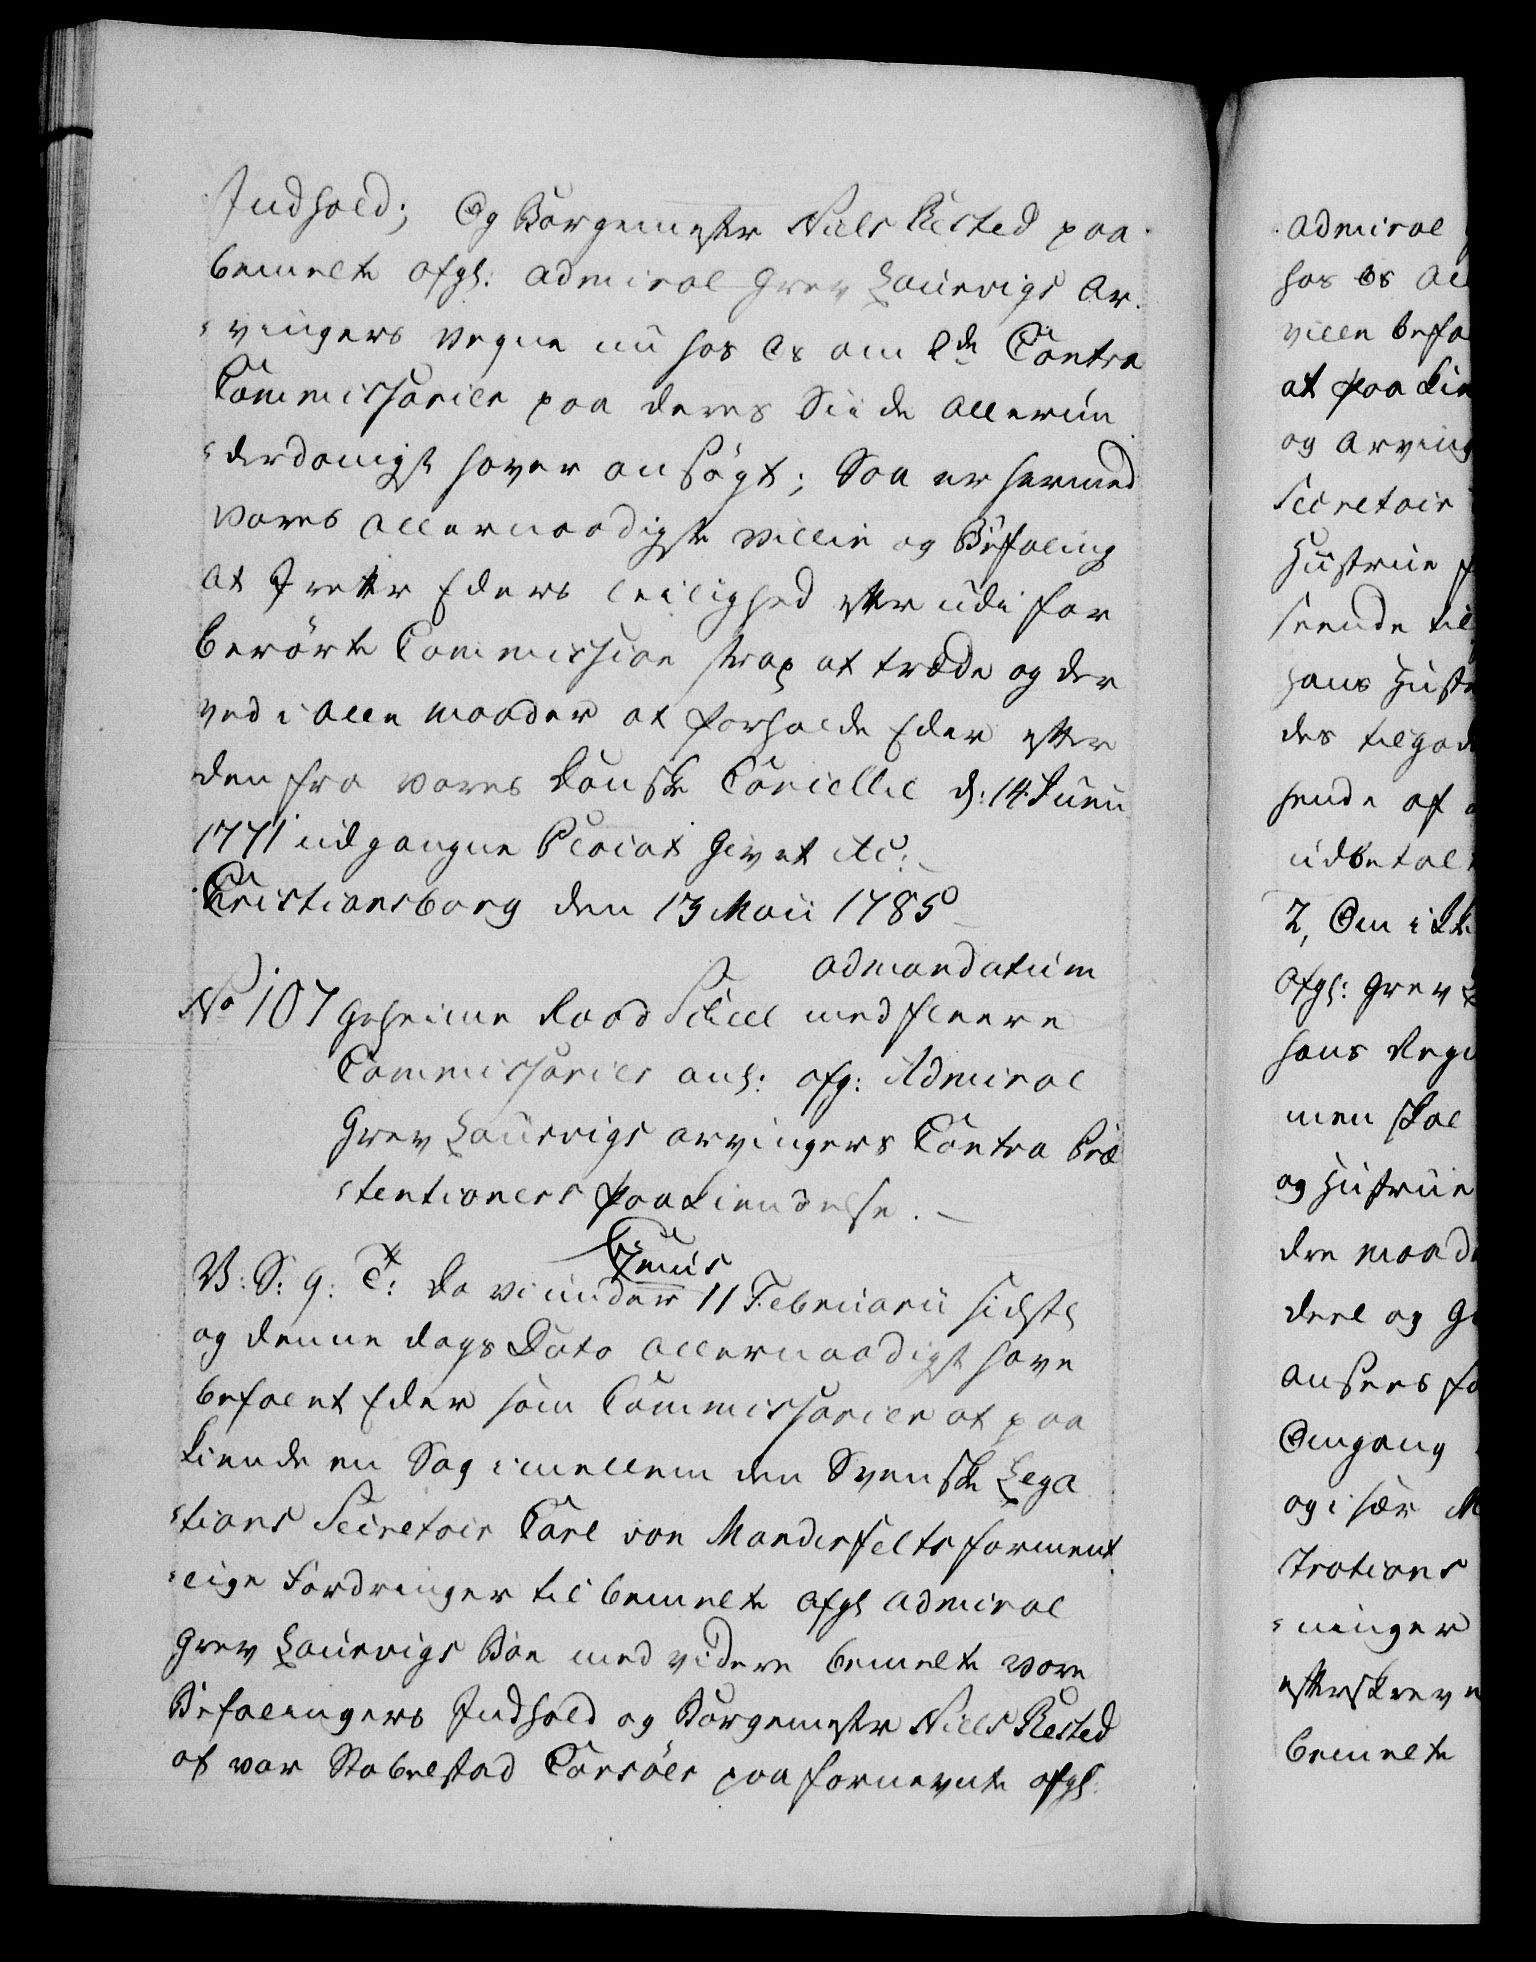 Indhold; Og Borgemester Niels Rested paa
bemelte afgl: Admiral Grev Laurvigs Ar
-vingers vegne nu hos Os om 2de Contra
Commissarier paa deres Siide allerun
-derdanigst haver ansøgt; Saa er hermed
vores allernaadigste Villie og Befaling
at I retter Eders leilighed efter udi for
berørte Commission strax at træde og der
ved i alle maader at forholde Eder efter
den fra vores Danske Cancellie d: 14 Junii
1771 udgangne Placat Givet etc:
Christiansborg den 13 Maii 1785
ad mandatum
No 107 Geheime Raad Scheel med fleere
Commissarier anl: afg: Admiral
Grev Laurvigs arvingers Contra Præ
-tentioners paakiendelse.
V: S: g: T: Da vi under 11 Februarii sidstl
og denne dags Dato allernaadigst have
befalet Eder som Commissarier at paa
kiende en Sag imellem den Svenske Lega
-tions Secretair Carl von Manderfelts forment
-lige Fordringer til bemelte afgl Admiral
Grev Laurvigs Boe med videre bemelte vore
Befalingers Indhold og Borgemester Niels Rested
af vor Stabelstad Corsöer paa fornevnte afgl:
Admiral
hos Os
ville
at paa
og
Secretair
Hustrue
seende til
hans
des
hende af
2, Om ikke
afgl: Grev
hans
men skal
og Hustrue
dre
deel og
ansees
Omgang
og i sær
trations
-ninger
bemelte